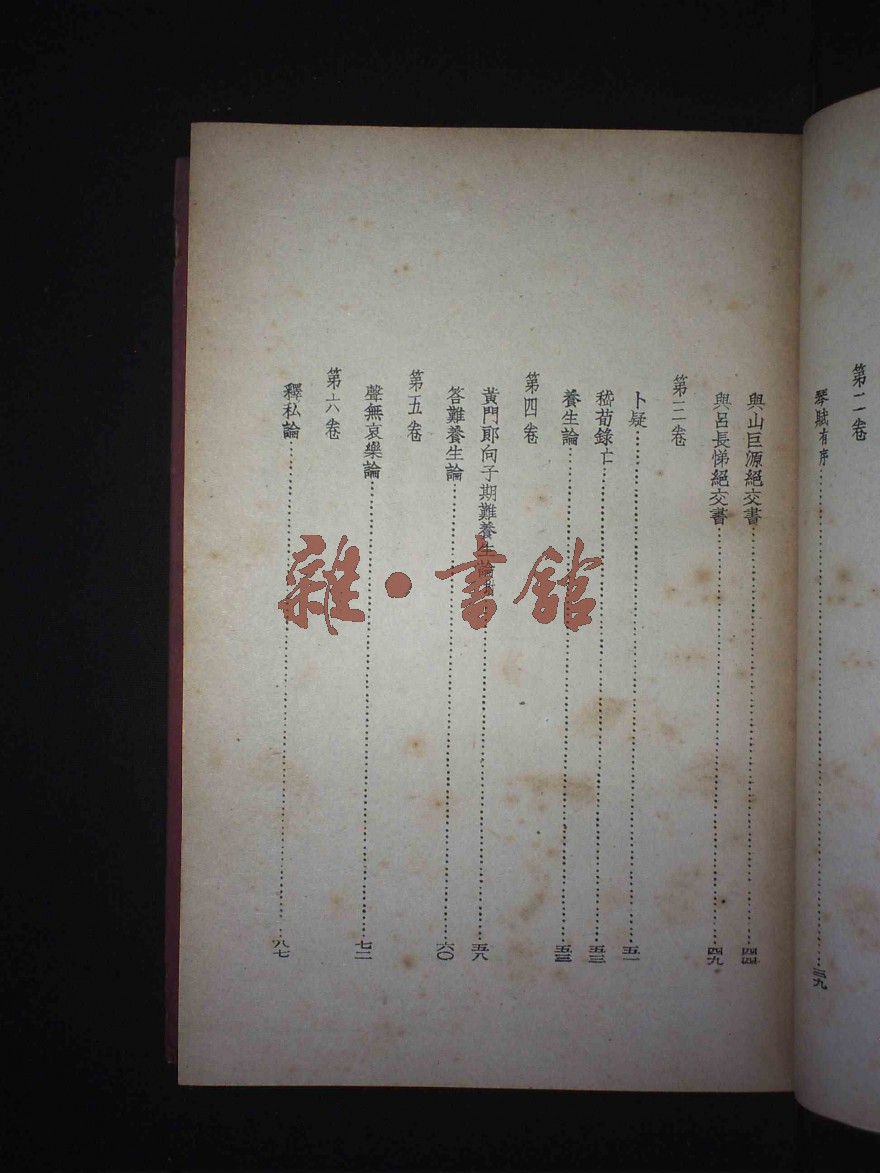 第二卷
琴賦有序……三九
與山巨源絕交書……四四
與呂長悌絕交書……四九
第三卷
卜疑……五一
嵇荀錄亡……五三
養生論……五三
第四卷
黃門郎向子期難養生論……五八
答難養生論……六〇
第五卷
聲無哀樂論……七二
第六卷
釋私論……八七
雜·書館